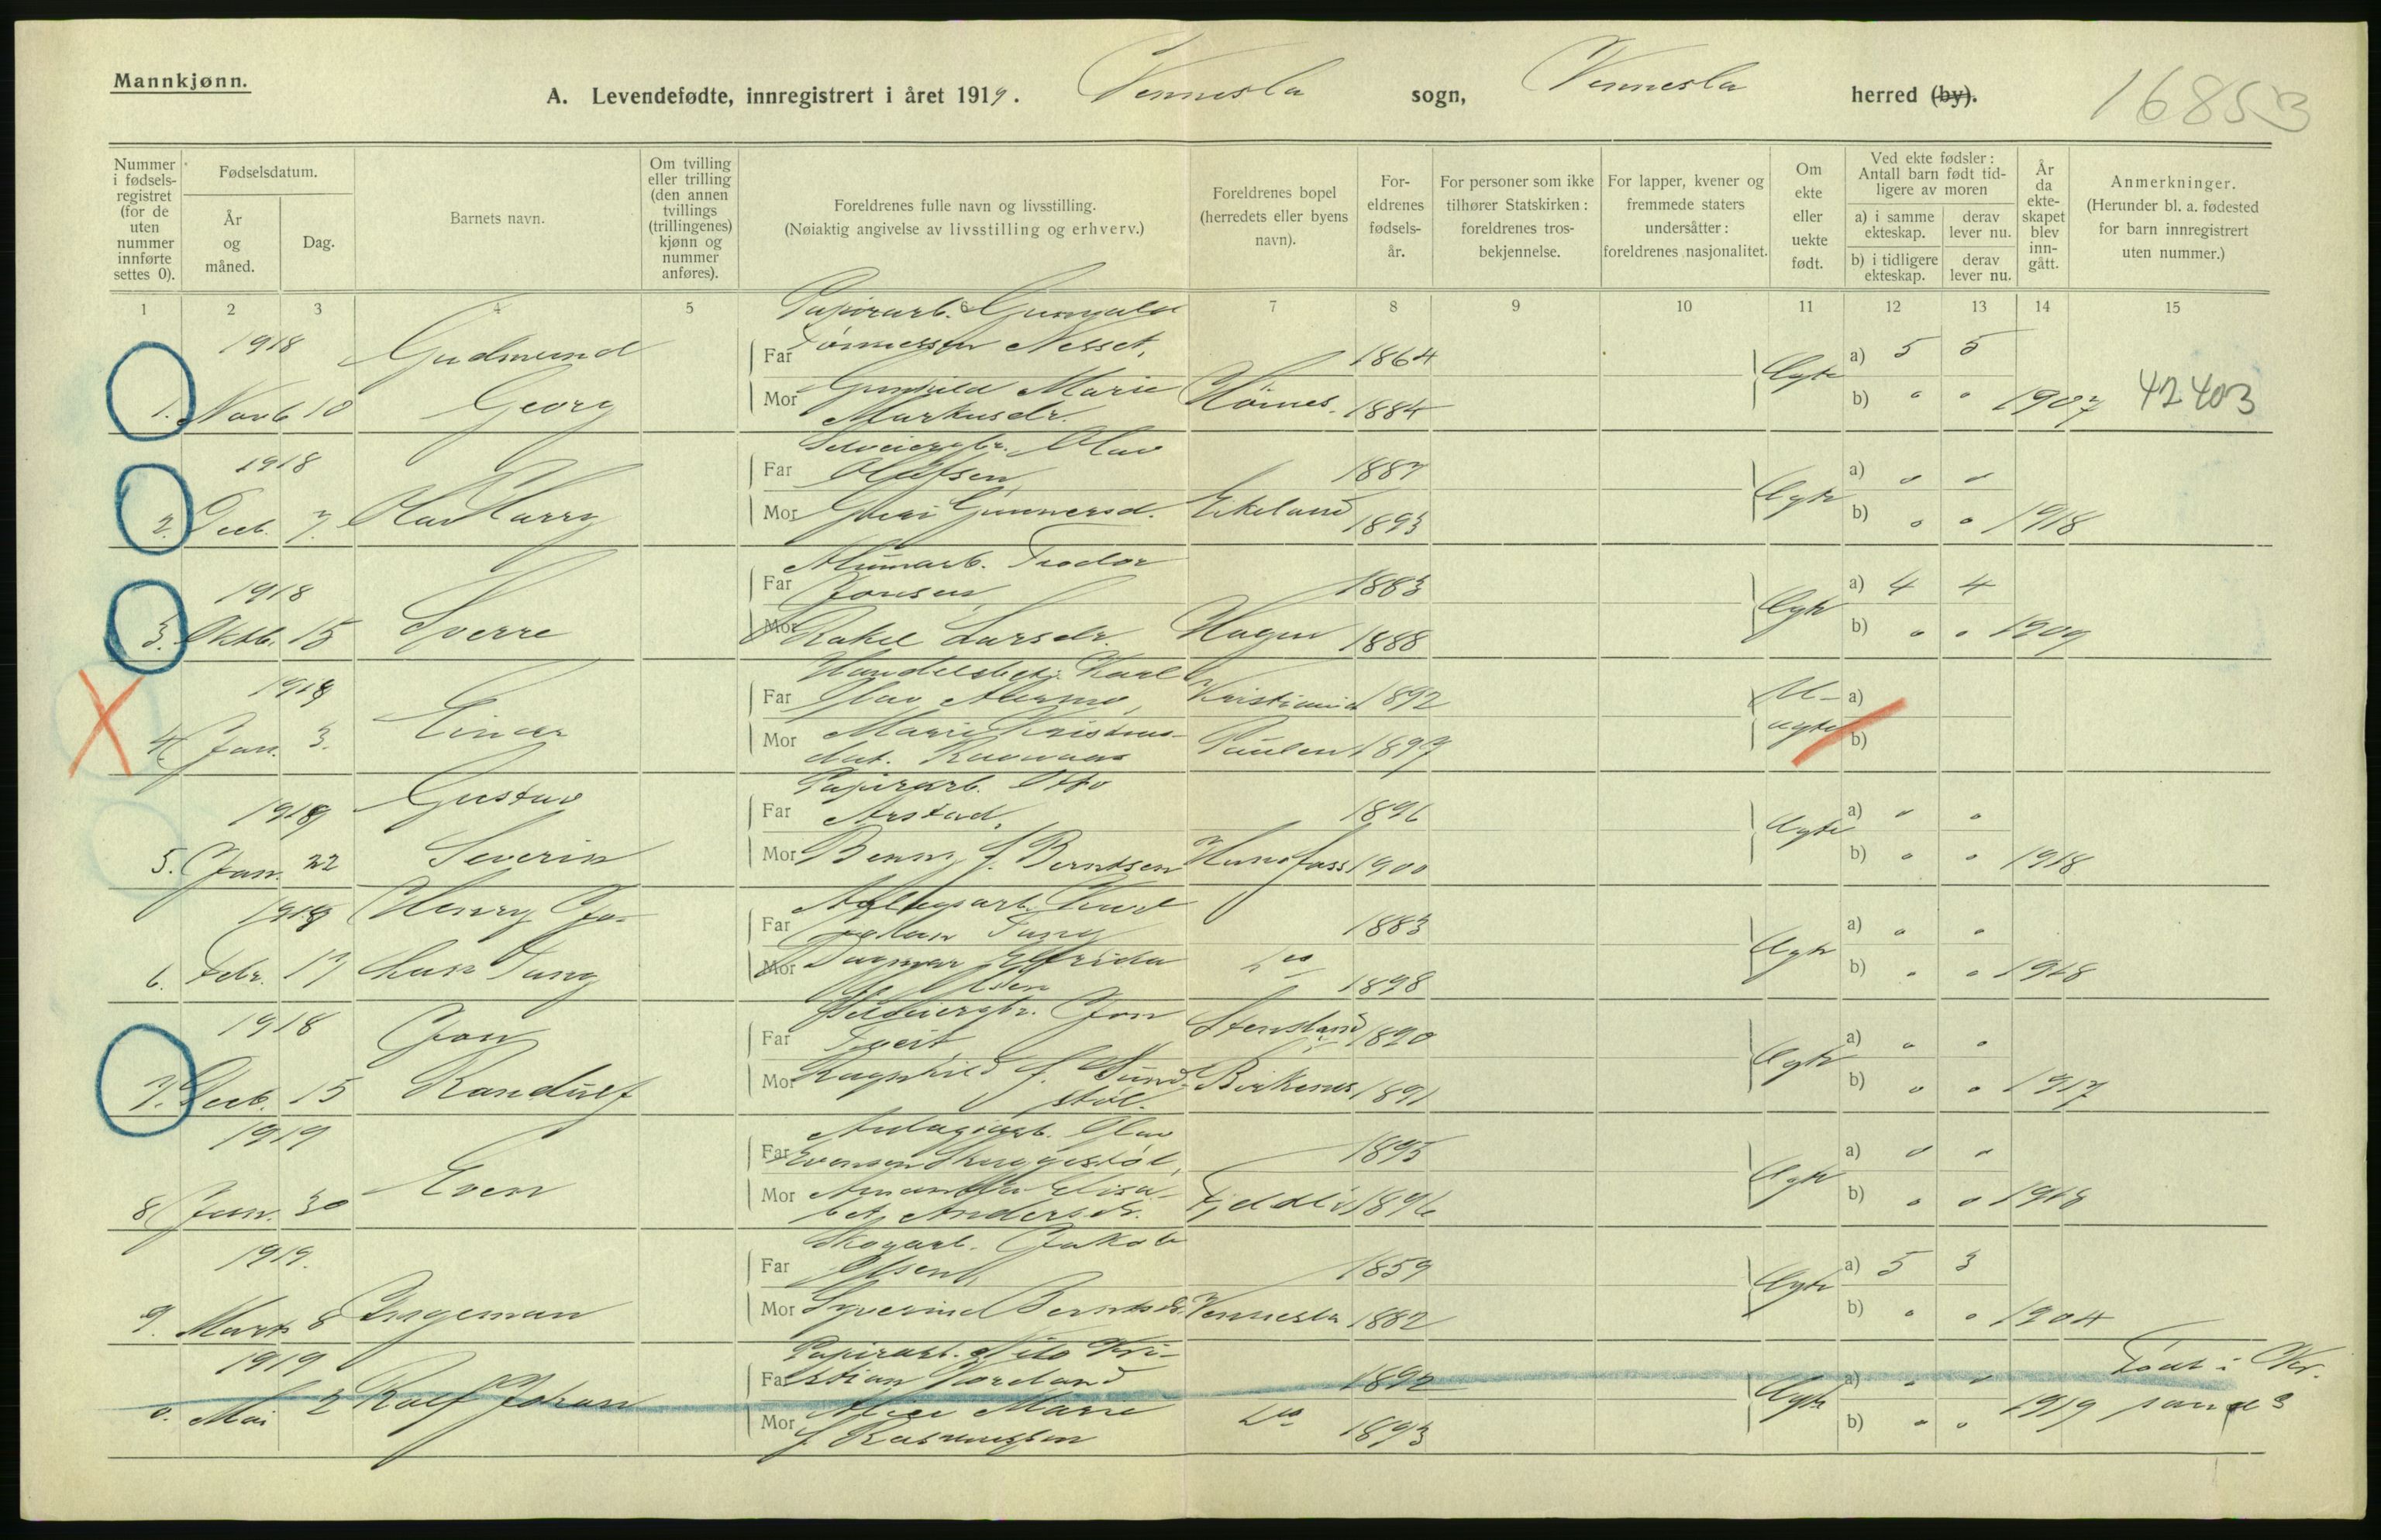 Mannkjønn.
A. Levendefødte, innregistrert i året 1919. Vennesla sogn, Vennesla herred (by).
16853
Nummer i fødsels- registret (for de uten nummer innførte settes 0).
Fødselsdatum.
År og måned.
Dag.
Barnets navn.
Om tvilling eller trilling (den annen tvillings (trillingenes) kjønn og nummer anføres).
Foreldrenes fulle navn og livsstilling.
(Nøiaktig angivelse av livsstilling og erhverv.)
Foreldrenes bopel (herredets eller byens navn).
For- eldrenes fødsels- år.
For personer som ikke tilhører Statskirken: foreldrenes tros- bekjennelse.
For lapper, kvener og fremmede staters undersåtter: foreldrenes nasjonalitet.
Om ekte eller uekte født.
Ved ekte fødsler: Antall barn født tid- ligere av moren
a) i samme ekteskap.
derav lever nu.
b) i tidligere ekteskap.
derav lever nu.
År da ekte- skapet blev inn- gått.
Anmerkninger.
(Herunder bl. a. fødested for barn innregistrert uten nummer.)
1 2 3 4 5 6 7 8 9 10 11 12 13 14 15
Papirarb. Gunvald
1918 Gudmund Far Tønnessen Nesset, 1864 a) 5 5
1. Novb 10 Georg Mor Gunhild Marie Markusdr. Hômes. 1884 Ægte b) " " 1907 42403
1918 Far Olav Olafsen 1887 a) " "
2. Decb. 7. Olav Harry Mor Gunnersd. Eikeland 1893 Ægte b) " " 1918
1918 Far Teodor Jonsen 1883 a) 4 4
3. Oktb. 15 Sverre Mor Rakel Larsdr. Hagen 1888 Ægte b) " " 1909
Handelsbetj. Karl
1919 Einar Far Olav Kristiania 1892 U- a)
4. Jan. 3. Mor Marie Kristens- dat. 1897 ægte b)
Papirarb. Otto
1919 Gustav Far Arstad, 1896 a) " "
5. Jan. 22 Severin Mor Benny f. Berntsen Hunsfoss 1900 Ægte b) " " 1918
1919 Henry Jo- Far Johan Tung 1883 a) " "
6. Febr. 17 han Tung Mor Dagmar Elfrida f. Olsen do 1898 Ægte b) " " 1918
1918 Jon Far Jon Tveit Stensland 1890 a) " "
7. Decb. 15 Randulf Mor Ragnhild f. Sund- støl. Birkenes 1891 Ægte b) " " 1917
Anlægsarb. Olav
1919 Far Evensen Skuggestøl, 1895 a) " "
8. Jan. 30 Even Mor Amanda Elisa- bet Andersdr. 1896 Ægte b) " " 1918
Skogarb. Jakob
1919. Far Olsen, 1859 a) 5 3
9. Marts 8 Ingeman Mor Syverine Berntsdr. Vennesla 1882 Ægte b) " " 1904
Papirarb. Nils Kri-
1919 Far stian Voreland 1892 a) " " Født i Kr.
0. Mai 2 Rolf Johan Mor Alice Marie f. Rasmussen do 1893 Ægte b) " " 1919 sand S